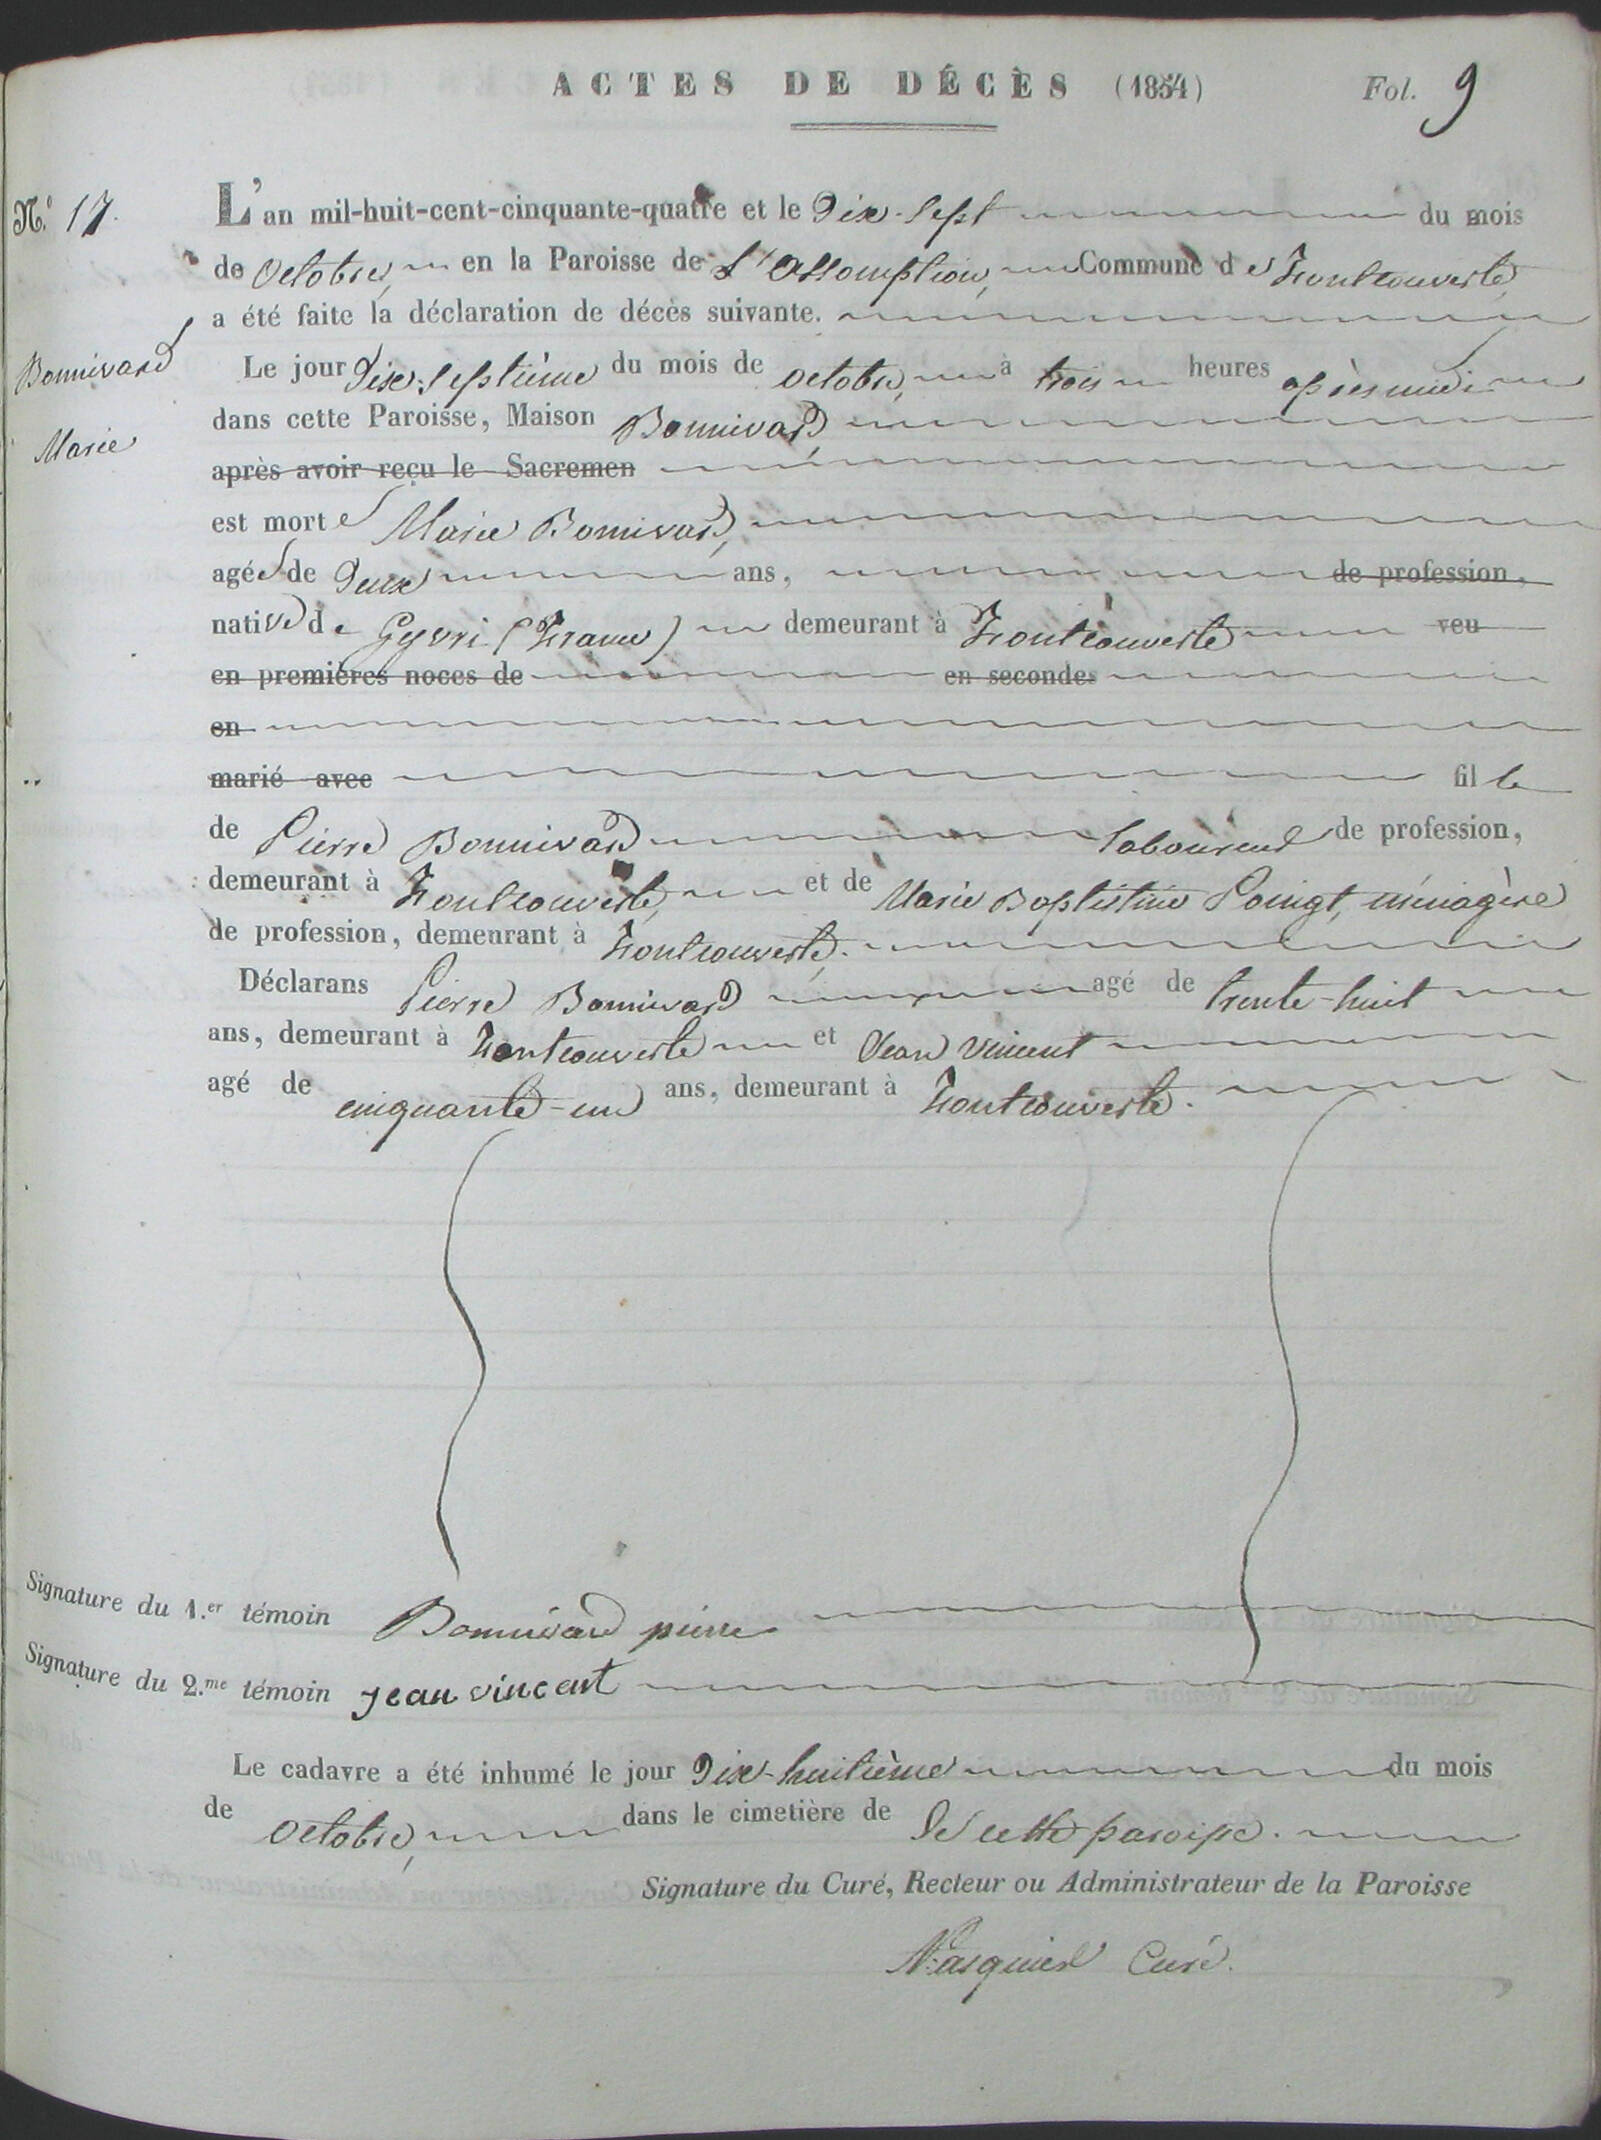 ACTES DE DÉCÈS (1854) Fol. 9
N.º 17.
L'an mil-huit-cent-cinquante-quatre et le Dix-Sept du mois
de Octobre, en la Paroisse de L'Assomption, Commune de Montcouverte,
a été faite la déclaration de décès suivante.
Bonnivard
Marie
Le jour Dix-Septième du mois de Octobre, à trois heures après midi
dans cette Paroisse, Maison Bonnivard
après avoir reçu le Sacremen
est morte Marie Bonnivard,
agée de Deux ans, de profession,
native de Gyvri (France) demeurant à Montcouverte veu
en premières noces de en secondes
en
marié avec fille
de Pierre Bonnivard laboureur de profession,
demeurant à Montcouverte, et de Marie Baptistine Poingt, ménagère
de profession, demeurant à Montcouverte.
Déclarans Pierre Bonnivard agé de trente-huit
ans, demeurant à Montcouverte et Jean Vincent
agé de cinquante-un ans, demeurant à Montcouverte.
Signature du 1.er témoin Bonnivard pierre
Signature du 2.me témoin jean vincent
Le cadavre a été inhumé le jour Dix-huitième du mois
de Octobre, dans le cimetière de De cette paroisse.
Signature du Curé, Recteur ou Administrateur de la Paroisse
Curé.